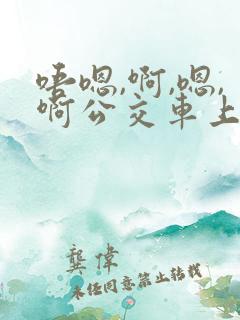 唔嗯,啊,嗯,
啊公交車上
龔偉
未经同意禁止转载